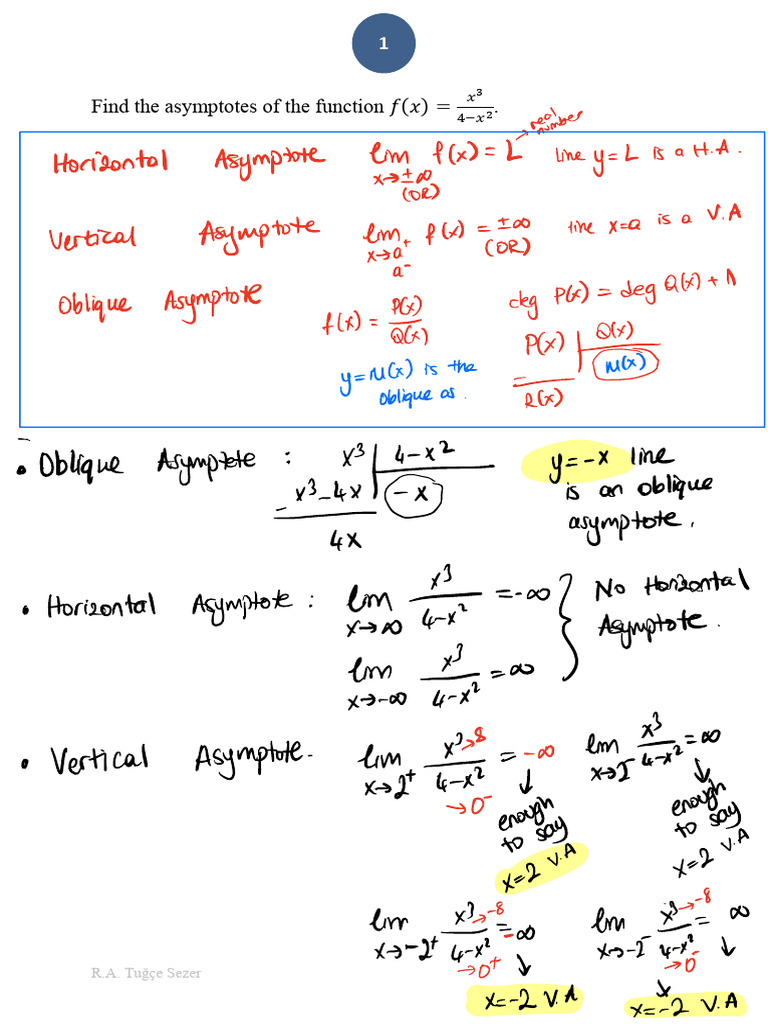 1
Find the asymptotes of the function f(x) = x³/(4−x²).
Horizontal Asymptote lim x→±∞ (OR) f(x) = L → real number line y = L is a H.A.
Vertical Asymptote lim x→a⁺ a⁻ f(x) = ±∞ (OR) line x=a is a V.A
Oblique Asymptote f(x) = P(x)/Q(x) deg P(x) = deg Q(x) + 1
P(x) | Q(x)
M(x)
− R(x)
y = M(x) is the
oblique as.
• Oblique Asymptote : x³ | 4−x²
− x³−4x | −x
4x
y = −x line
is an oblique
asymptote.
• Horizontal Asymptote : lim x→∞ x³/(4−x²) = −∞
lim x→−∞ x³/(4−x²) = ∞
No Horizontal
Asymptote.
• Vertical Asymptote. lim x→2⁺ x³→8/(4−x²)→0⁻ = −∞
↓
enough
to say
x=2 V.A
lim x→2⁻ x³/(4−x²) = ∞
↓
enough
to say
x=2 V.A
lim x→−2⁺ x³→−8/(4−x²)→0⁺ = −∞
↓
x=−2 V.A
lim x→−2⁻ x³→−8/(4−x²)→0⁻ = ∞
↓
x=−2 V.A
R.A. Tuğçe Sezer